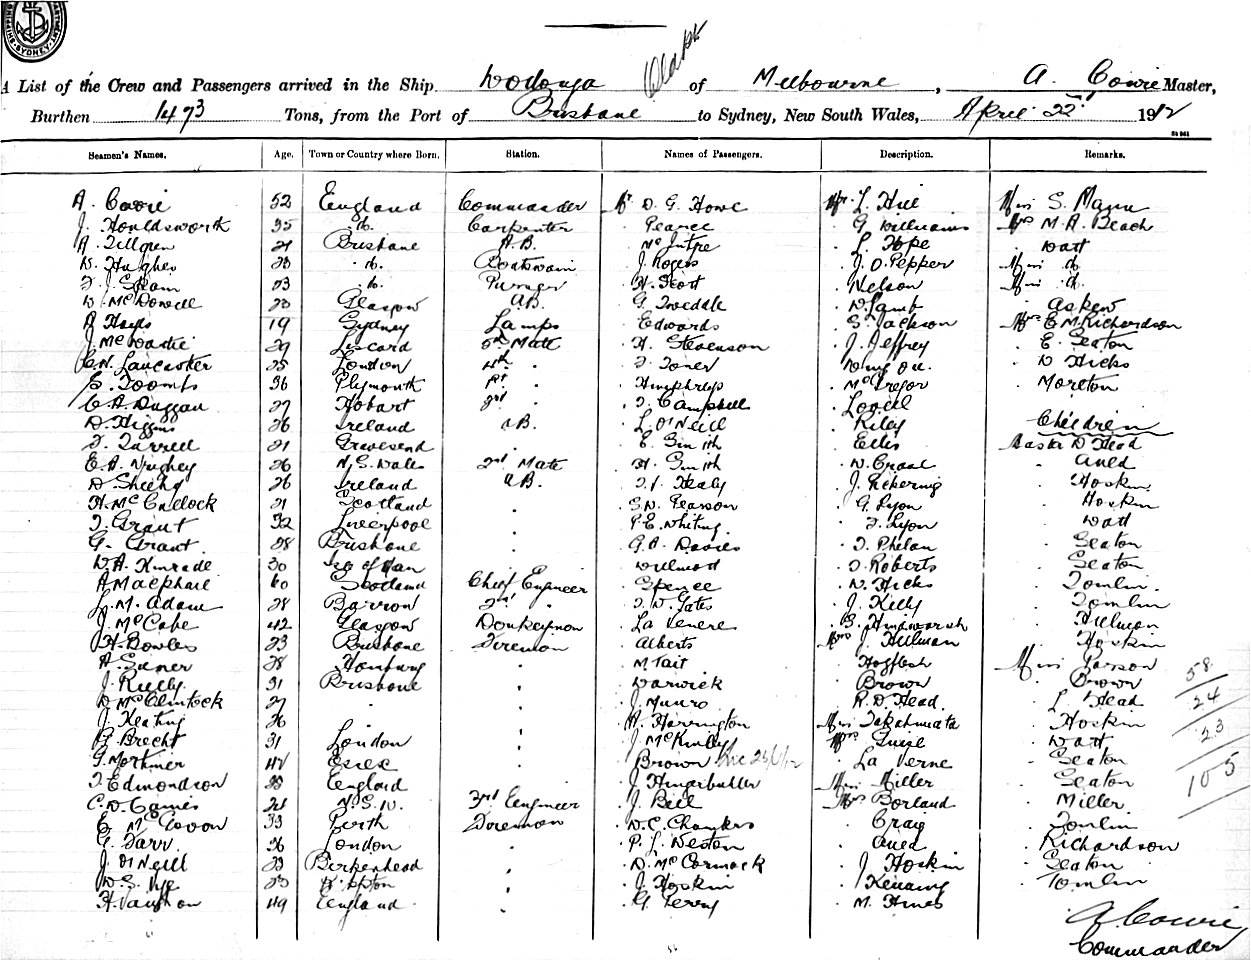 SYDNEY
A List of the Crew and Passengers arrived in the Ship Wodonga of Melbourne, A. Cowie Master,
Burthen 1473 Tons, from the Port of Brisbane to Sydney, New South Wales, April 22 1912
Seamen's Names. Age. Town or Country where Born. Station. Names of Passengers. Description. Remarks.
A. Cowie 52 England Commander Mr D. G. Howe Mr L. Hill Miss S. Mann
J. Houldsworth 35 do. Carpenter Pearce G. Williams Mrs M. A. Beach
A. Tillgren 21 Brisbane A.B. McIntyre L. Hope Watt
W. Hughes 28 do. Boatswain J. Rogers J. O. Pepper Miss do
23 do. Purser H. Scott Nelson Miss do.
D. McDowell 28 Glasgow A.B. G. Tweddle W. Lamb Askew
A. Hayes 19 Sydney Lamps Edwards S. Jackson Mrs E. M. Richardson
29 Liscard 5th Mate H. Stevenson J. Jeffrey E. Seaton
C. N. Lancaster 25 London 4th " T. Toner D. Hicks
E. Toombs 36 Plymouth 1st " Humphreys McGregor Moreton
C. A. Duggan 27 Hobart 3rd " T. Campbell Lovell
D. Higgins 26 Ireland A.B. L. O'Neill Riley Children
T. Farrell 21 Gravesend E. Smith Ellis Master D. Head
26 N. S. Wales 2nd Mate H. Smith Auld
D. Sheehy 26 Ireland A.B. T. J. Healy J. Pickering Hoskin
H. McCullock 21 Scotland S. W. Pearson G. Lyon Hoskin
T. Grant 32 Liverpool P. E. Whiting T. Lyon Watt
G. Grant 28 Brisbane G. A. Davies T. Phelan Seaton
W. A. Kinrade 30 Isle of Man T. Roberts Seaton
A. Macphail 60 Scotland Chief Engineer Spence W. Hicks Tomlin
L. M. Adam 28 Barrow 2nd " T. W. Yates J. Kelly Tomlin
J. McCabe 42 Glasgow Donkeyman La Venere Hillman
H. Bowles 23 Brisbane Fireman Alberts Mrs J. Hillman Hoskin
28 Hamburg M. Tait Hogflesh Miss Parson
J. Reilly 31 Brisbane Warwick Brown Brown 58
D. McClintock 27 " J. Munro R. D. Head L. Head 24
J. Keating 26 " H. Harrington Miss Takahmata Hoskin
B. Brecht 31 London J. McKinley Mrs Watt 23
G. Mortimer 42 Essex Brown La Verne Seaton
T. Edmondson 28 England J. Hingerbuhler Miss Miller Seaton 105
C. D. Gaines N.S.W. 3rd Engineer J. Bell Mrs Borland Miller
E. McGovan 33 Perth Fireman W. C. Chambers Craig Tomlin
G. Farr 36 London P. L. Weston Auld Richardson
J. O'Neill 23 Birkenhead D. McCormack J. Hoskin Seaton
23 J. Hoskin Tomlin
H. Vaughan 49 England G. Perry M. Hines
A. Cowie
Commander